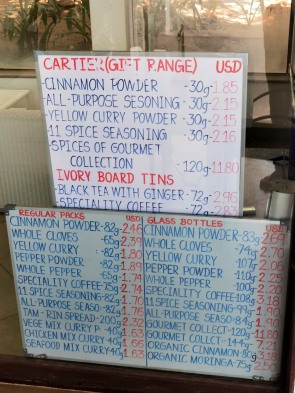 CARTIER (GIFT RANGE) USD
-CINNAMON POWDER -30g-1.85
-ALL-PURPOSE SESONING -30g-2.15
-YELLOW CURRY POWDER -30g-2.15
-11 SPICE SEASONING -30g-2.16
-SPICES OF GOURMET
COLLECTION -120g-11.80
IVORY BOARD TINS
-BLACK TEA WITH GINGER-72g-2.96
-SPECIALITY COFFEE -72g-2.83
REGULAR PACKS USD
CINNAMON POWDER-83g-2.46
WHOLE CLOVES -65g-2.39
YELLOW CURRY -82g-1.80
PEPPER POWDER -82g-1.89
WHOLE PEPPER -65g-1.89
SPECIALITY COFFEE-75g-1.74
11 SPICE SEASONING-82g-1.70
ALL-PURPOSE SEASO-82g-1.76
TAM-RIN SPREAD-200g-2.32
VEGE MIX CURRY P-40g-1.63
CHICKEN MIX CURRY-40g-1.63
SEAFOOD MIX CURRY 40g-1.63
GLASS BOTTLES USD
CINNAMON POWDER-83g-2.69
WHOLE CLOVES -74g-2.70
YELLOW CURRY -107g
PEPPER POWDER -110g
WHOLE PEPPER -100g
SPECIALITY COFFEE -108g-3.18
11 SPICE SEASONING-99g-1.90
ALL-PURPOSE SEASO-84g-1.90
GOURMET COLLECT-120g-11.80
GOURMET COLLCT-144g-7.21
ORGANIC CINNAMON-80g-3.18
ORGANIC MORINGA-75g